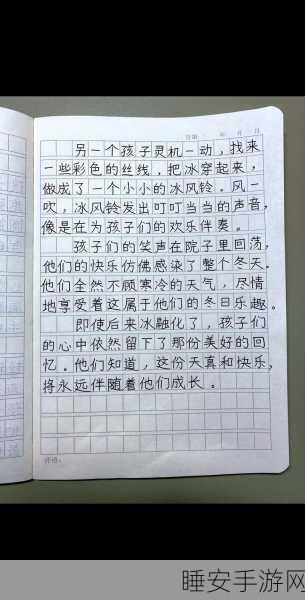 日期： 年 月 日
另一个孩子灵机一动，找来
一些彩色的丝线，把冰穿起来，
做成了一个小小的冰风铃。风一
吹，冰风铃发出叮叮当当的声音，
像是在为孩子们的欢乐伴奏。
孩子们的笑声在院子里回荡，
他们的快乐仿佛感染了整个冬天。
他们全然不顾寒冷的天气，尽情
地享受着这属于他们的冬日乐趣。
即使后来冰融化了，孩子们
的心中依然留下了那份美好的回
忆。他们知道，这份天真和快乐，
将永远伴随着他们成长。
评语：
睡安手游网